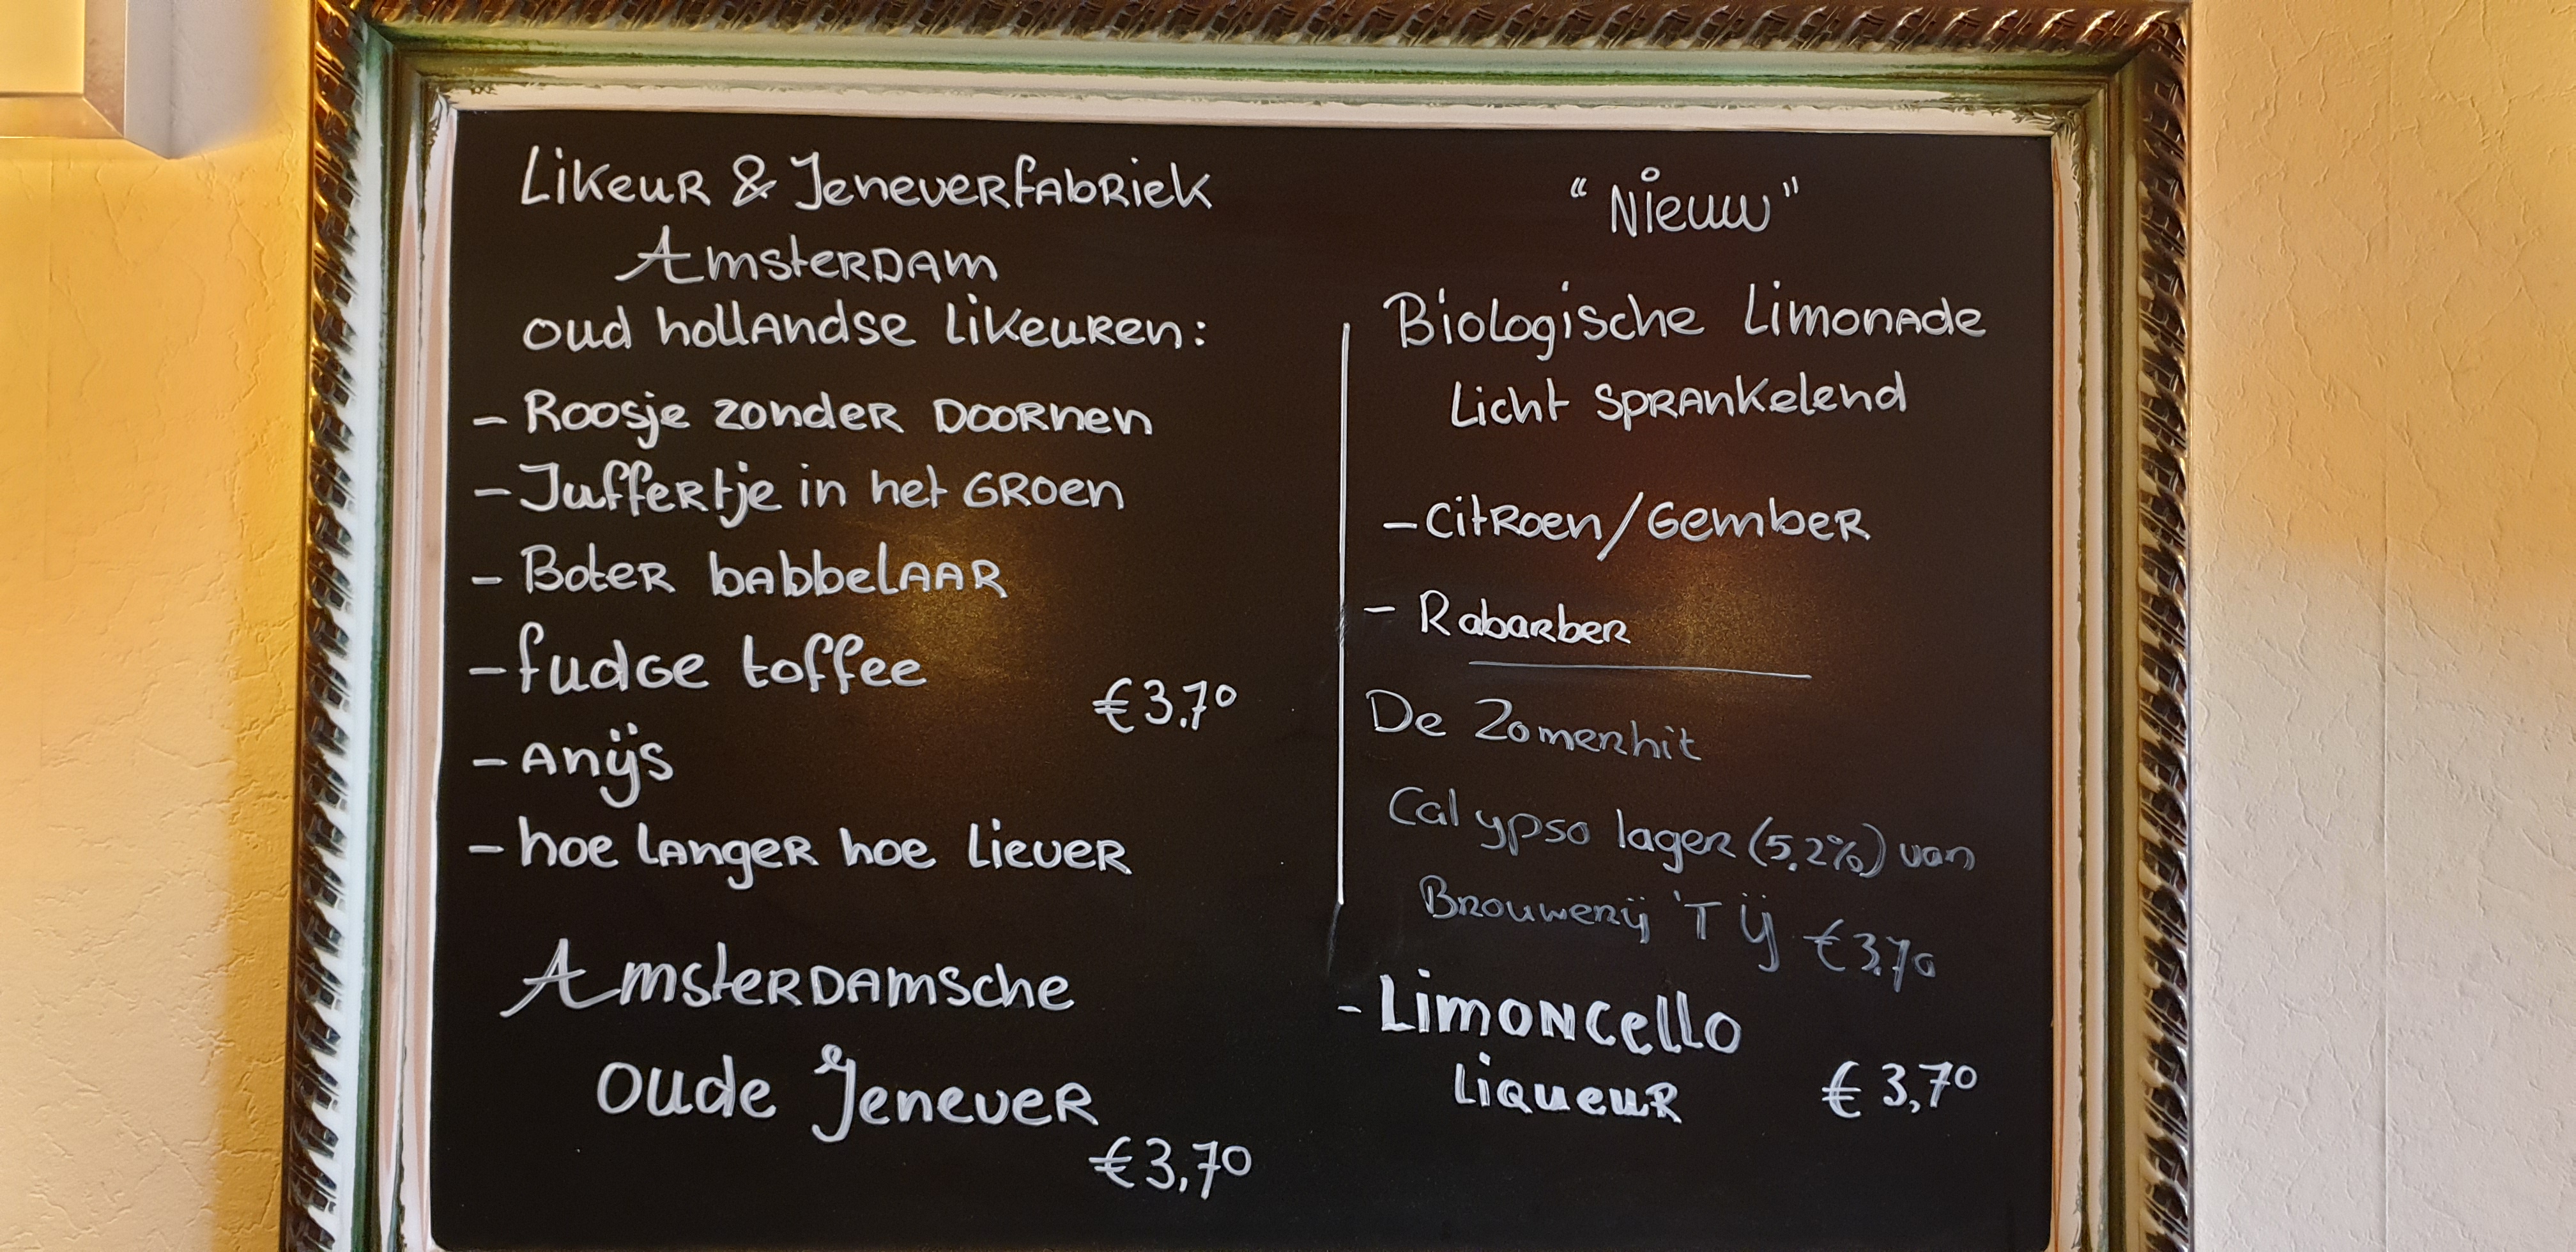 Likeur & Jeneverfabriek
Amsterdam
oud hollandse likeuren:
- Roosje zonder Doornen
- Juffertje in het Groen
- Boter babbelaar
- fudge toffee
€3,70
- Anijs
- hoe langer hoe liever
Amsterdamsche
oude Jenever
€3,70
"Nieuw"
Biologische Limonade
Licht sprankelend
- Citroen/Gember
- Rabarber
De Zomerhit
Calypso lager (5,2%) van
Brouwerij 'T IJ €3,70
- Limoncello
Liqueur €3,70